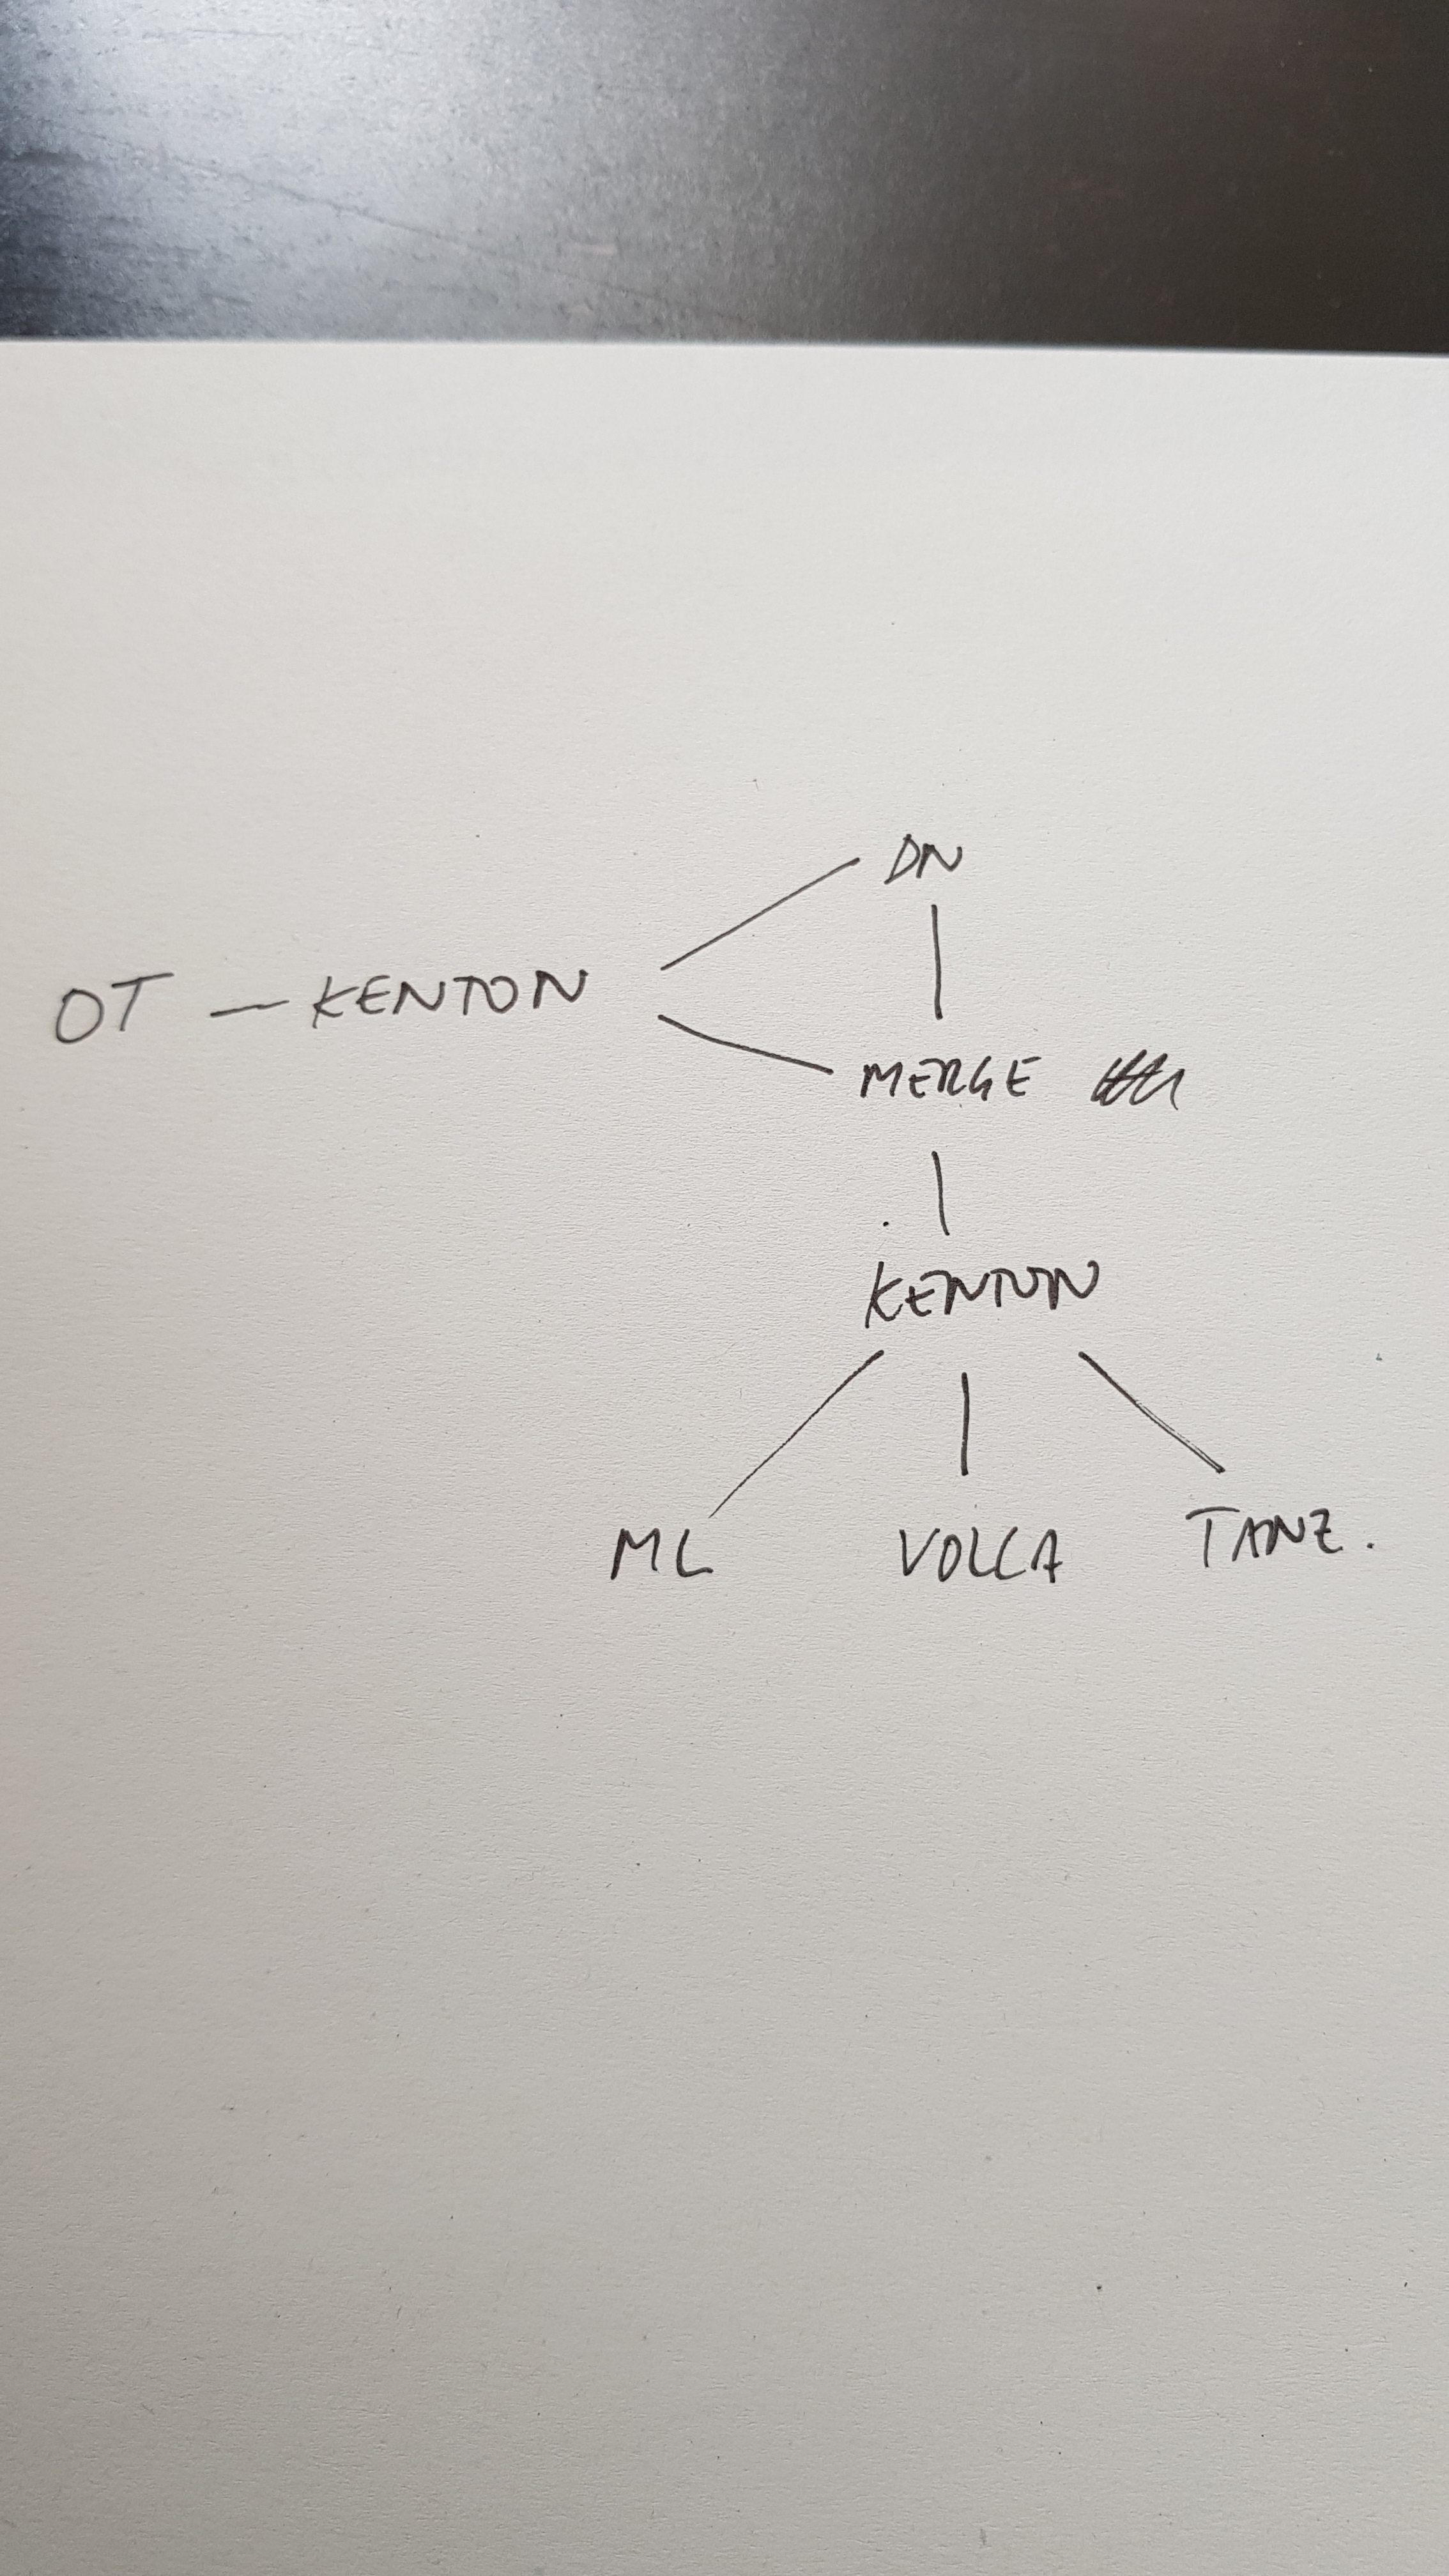 DN
OT — KENTON
MERGE
KENTON
ML VOLCA TANZ.